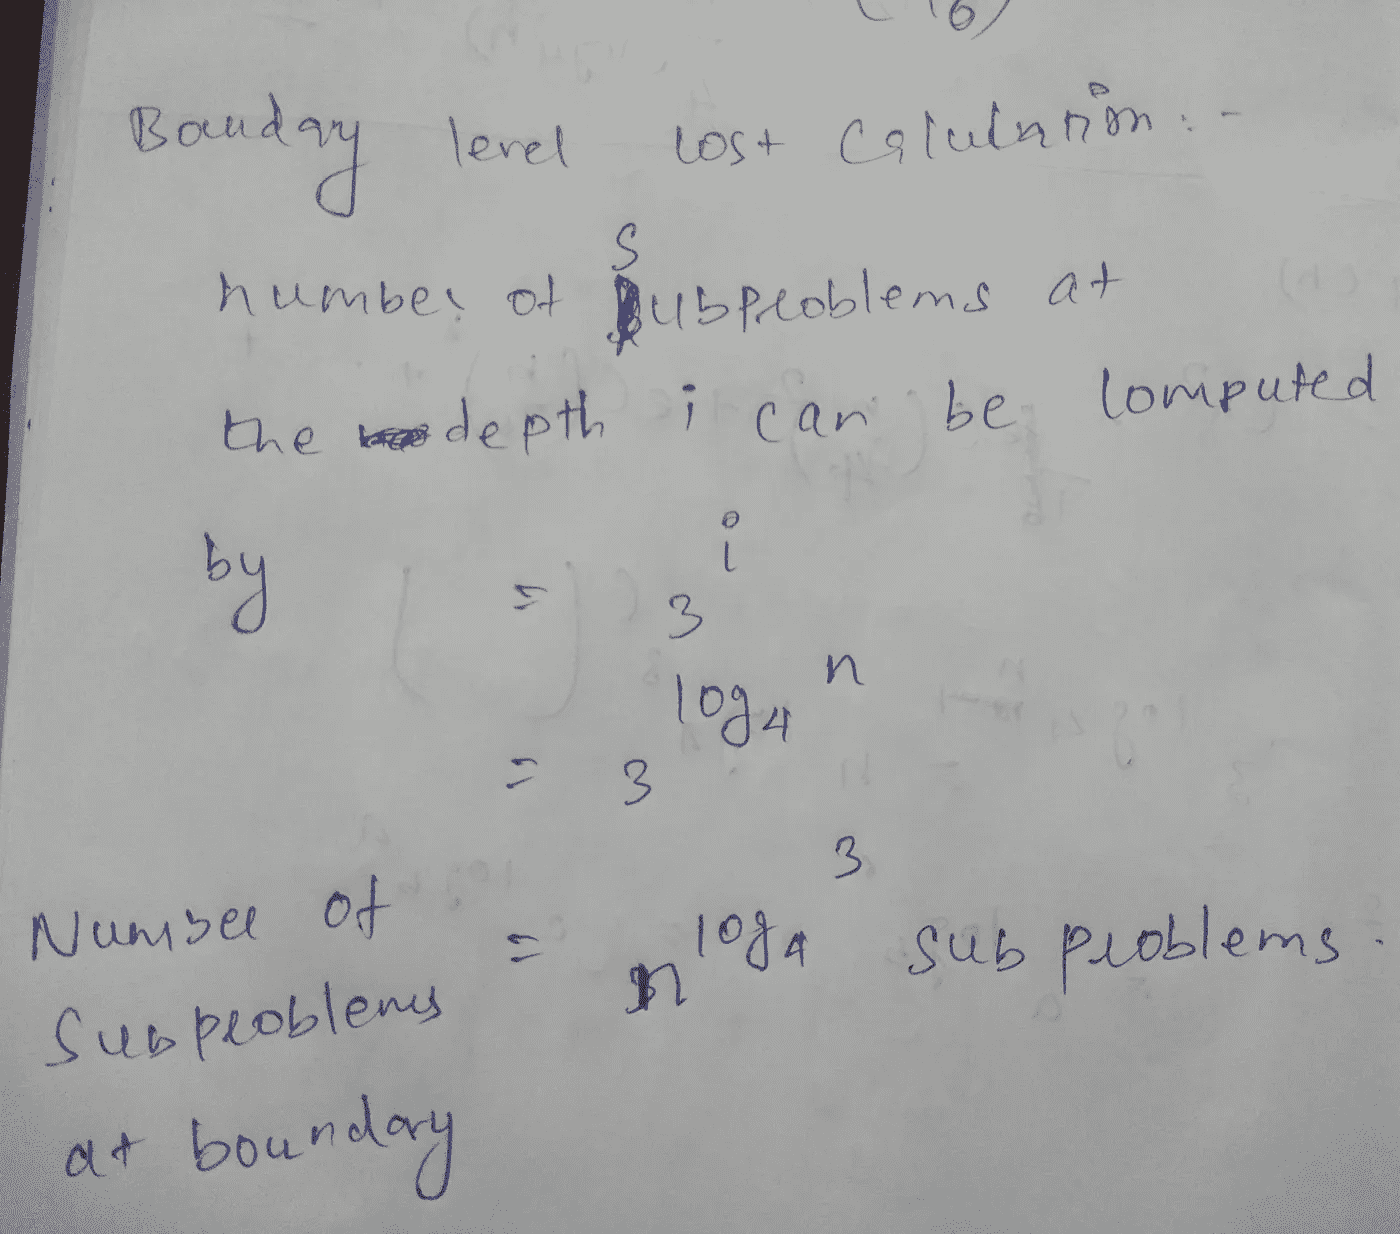 Boundary level cost Calculation :-
number of Subproblems at
the depth i can be computed
by = 3^i
= 3^log₄ n
Number of
Subproblems = n^log₄ 3 sub problems.
at boundary